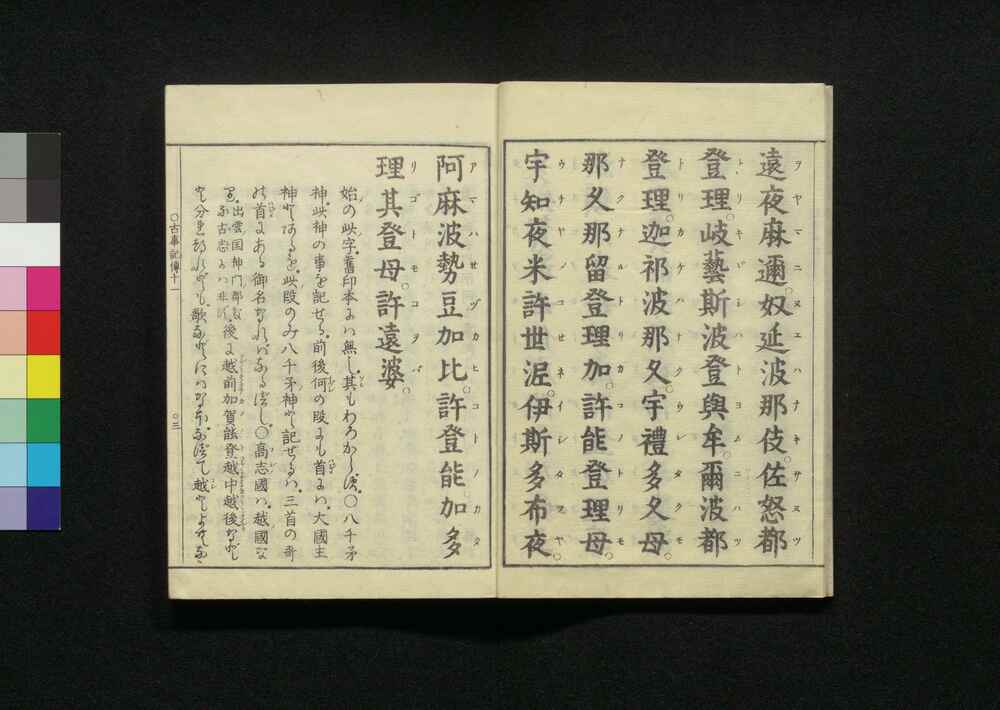 遠夜麻邇。奴延波那伎。佐怒都
登理。岐藝斯波登與牟。爾波都
登理。迦祁波那久。宇禮多久母。
那久那留登理加。許能登理母。
宇知夜米許世泥。伊斯多布夜。
阿麻波勢豆加比。許登能加多
理其登母許遠婆。
始の此字舊印本には無し其もわろからず。○八千矛
神此神の事を記せる前後何の段にも首には大國主
神とあるを此段のみ八千矛神と記せるは三首の哥
の首にある御名なればなるべし○高志國は越國な
後に越前加賀能登越中越後など
○古事記傳十一
○三